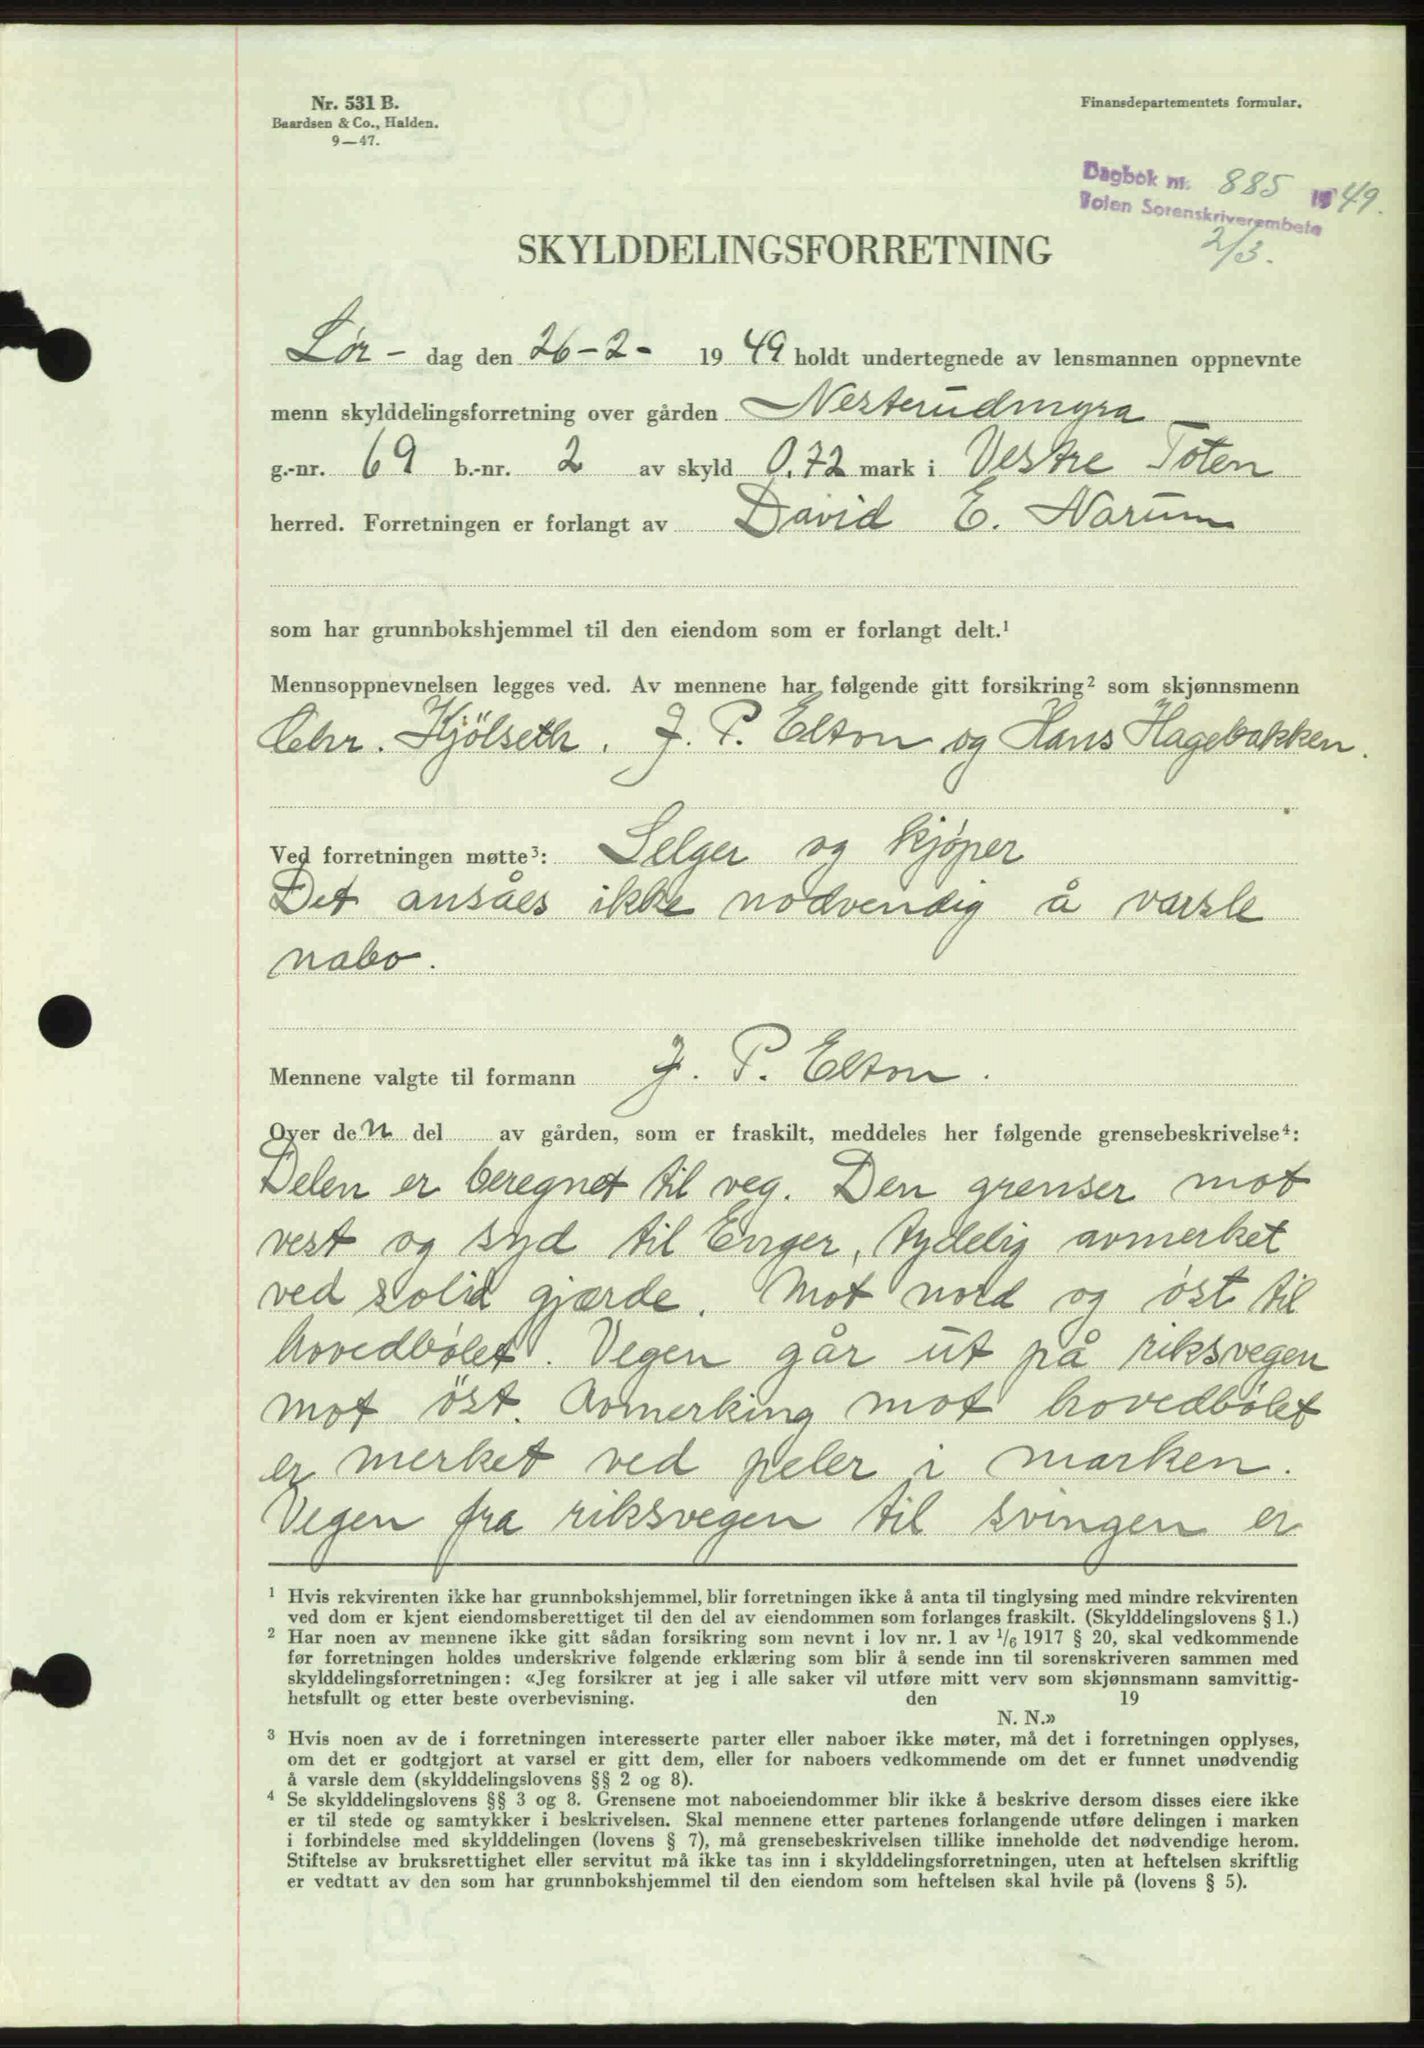 Nr. 531 B.
Baardsen & Co., Halden.
9—47.
Finansdepartementets formular.
Dagbok nr. 885 1949.
Toten Sorenskriverembete
2/3.
SKYLDDELINGSFORRETNING
Lør- dag den 26-2- 1949 holdt undertegnede av lensmannen oppnevnte
menn skylddelingsforretning over gården Nesterudmyra
g.-nr. 69 b.-nr. 2 av skyld 0.72 mark i Vestre Toten
herred. Forretningen er forlangt av David E. Narum
som har grunnbokshjemmel til den eiendom som er forlangt delt.¹
Mennsoppnevnelsen legges ved. Av mennene har følgende gitt forsikring² som skjønnsmenn
Chr. Kjölseth. J. P. Elton og Hans Hagebakken.
Ved forretningen møtte³: Selger og kjøper
Det ansåes ikke nodvendig å varsle
nabo.
Mennene valgte til formann J. P. Elton.
Over den del av gården, som er fraskilt, meddeles her følgende grensebeskrivelse⁴:
Delen er beregnet til veg. Den grenser mot
vest og syd til Enger, tydelig avmerket
ved solid gjærde. Mot nord og øst til
hovedbølet. Vegen går ut på riksvegen
mot öst. Avmerking mot hovedbølet
er merket ved peler i marken.
Vegen fra riksvegen til svingen er
¹ Hvis rekvirenten ikke har grunnbokshjemmel, blir forretningen ikke å anta til tinglysing med mindre rekvirenten
ved dom er kjent eiendomsberettiget til den del av eiendommen som forlanges fraskilt. (Skylddelingslovens § 1.)
² Har noen av mennene ikke gitt sådan forsikring som nevnt i lov nr. 1 av 1/6 1917 § 20, skal vedkommende
før forretningen holdes underskrive følgende erklæring som blir å sende inn til sorenskriveren sammen med
skylddelingsforretningen: «Jeg forsikrer at jeg i alle saker vil utføre mitt verv som skjønnsmann samvittig-
hetsfullt og etter beste overbevisning. den 19
N. N.»
³ Hvis noen av de i forretningen interesserte parter eller naboer ikke møter, må det i forretningen opplyses,
om det er godtgjort at varsel er gitt dem, eller for naboers vedkommende om det er funnet unødvendig
å varsle dem (skylddelingslovens §§ 2 og 8).
⁴ Se skylddelingslovens §§ 3 og 8. Grensene mot naboeiendommer blir ikke å beskrive dersom disses eiere ikke
er til stede og samtykker i beskrivelsen. Skal mennene etter partenes forlangende utføre delingen i marken
i forbindelse med skylddelingen (lovens § 7), må grensebeskrivelsen tillike inneholde det nødvendige herom.
Stiftelse av bruksrettighet eller servitut må ikke tas inn i skylddelingsforretningen, uten at heftelsen skriftlig
er vedtatt av den som har grunnbokshjemmel til den eiendom som heftelsen skal hvile på (lovens § 5).